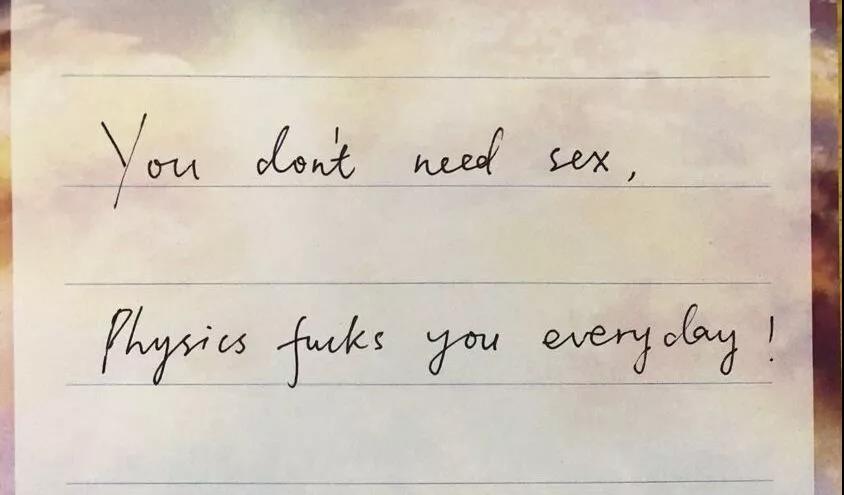 You don't need sex,
Physics fucks you everyday!